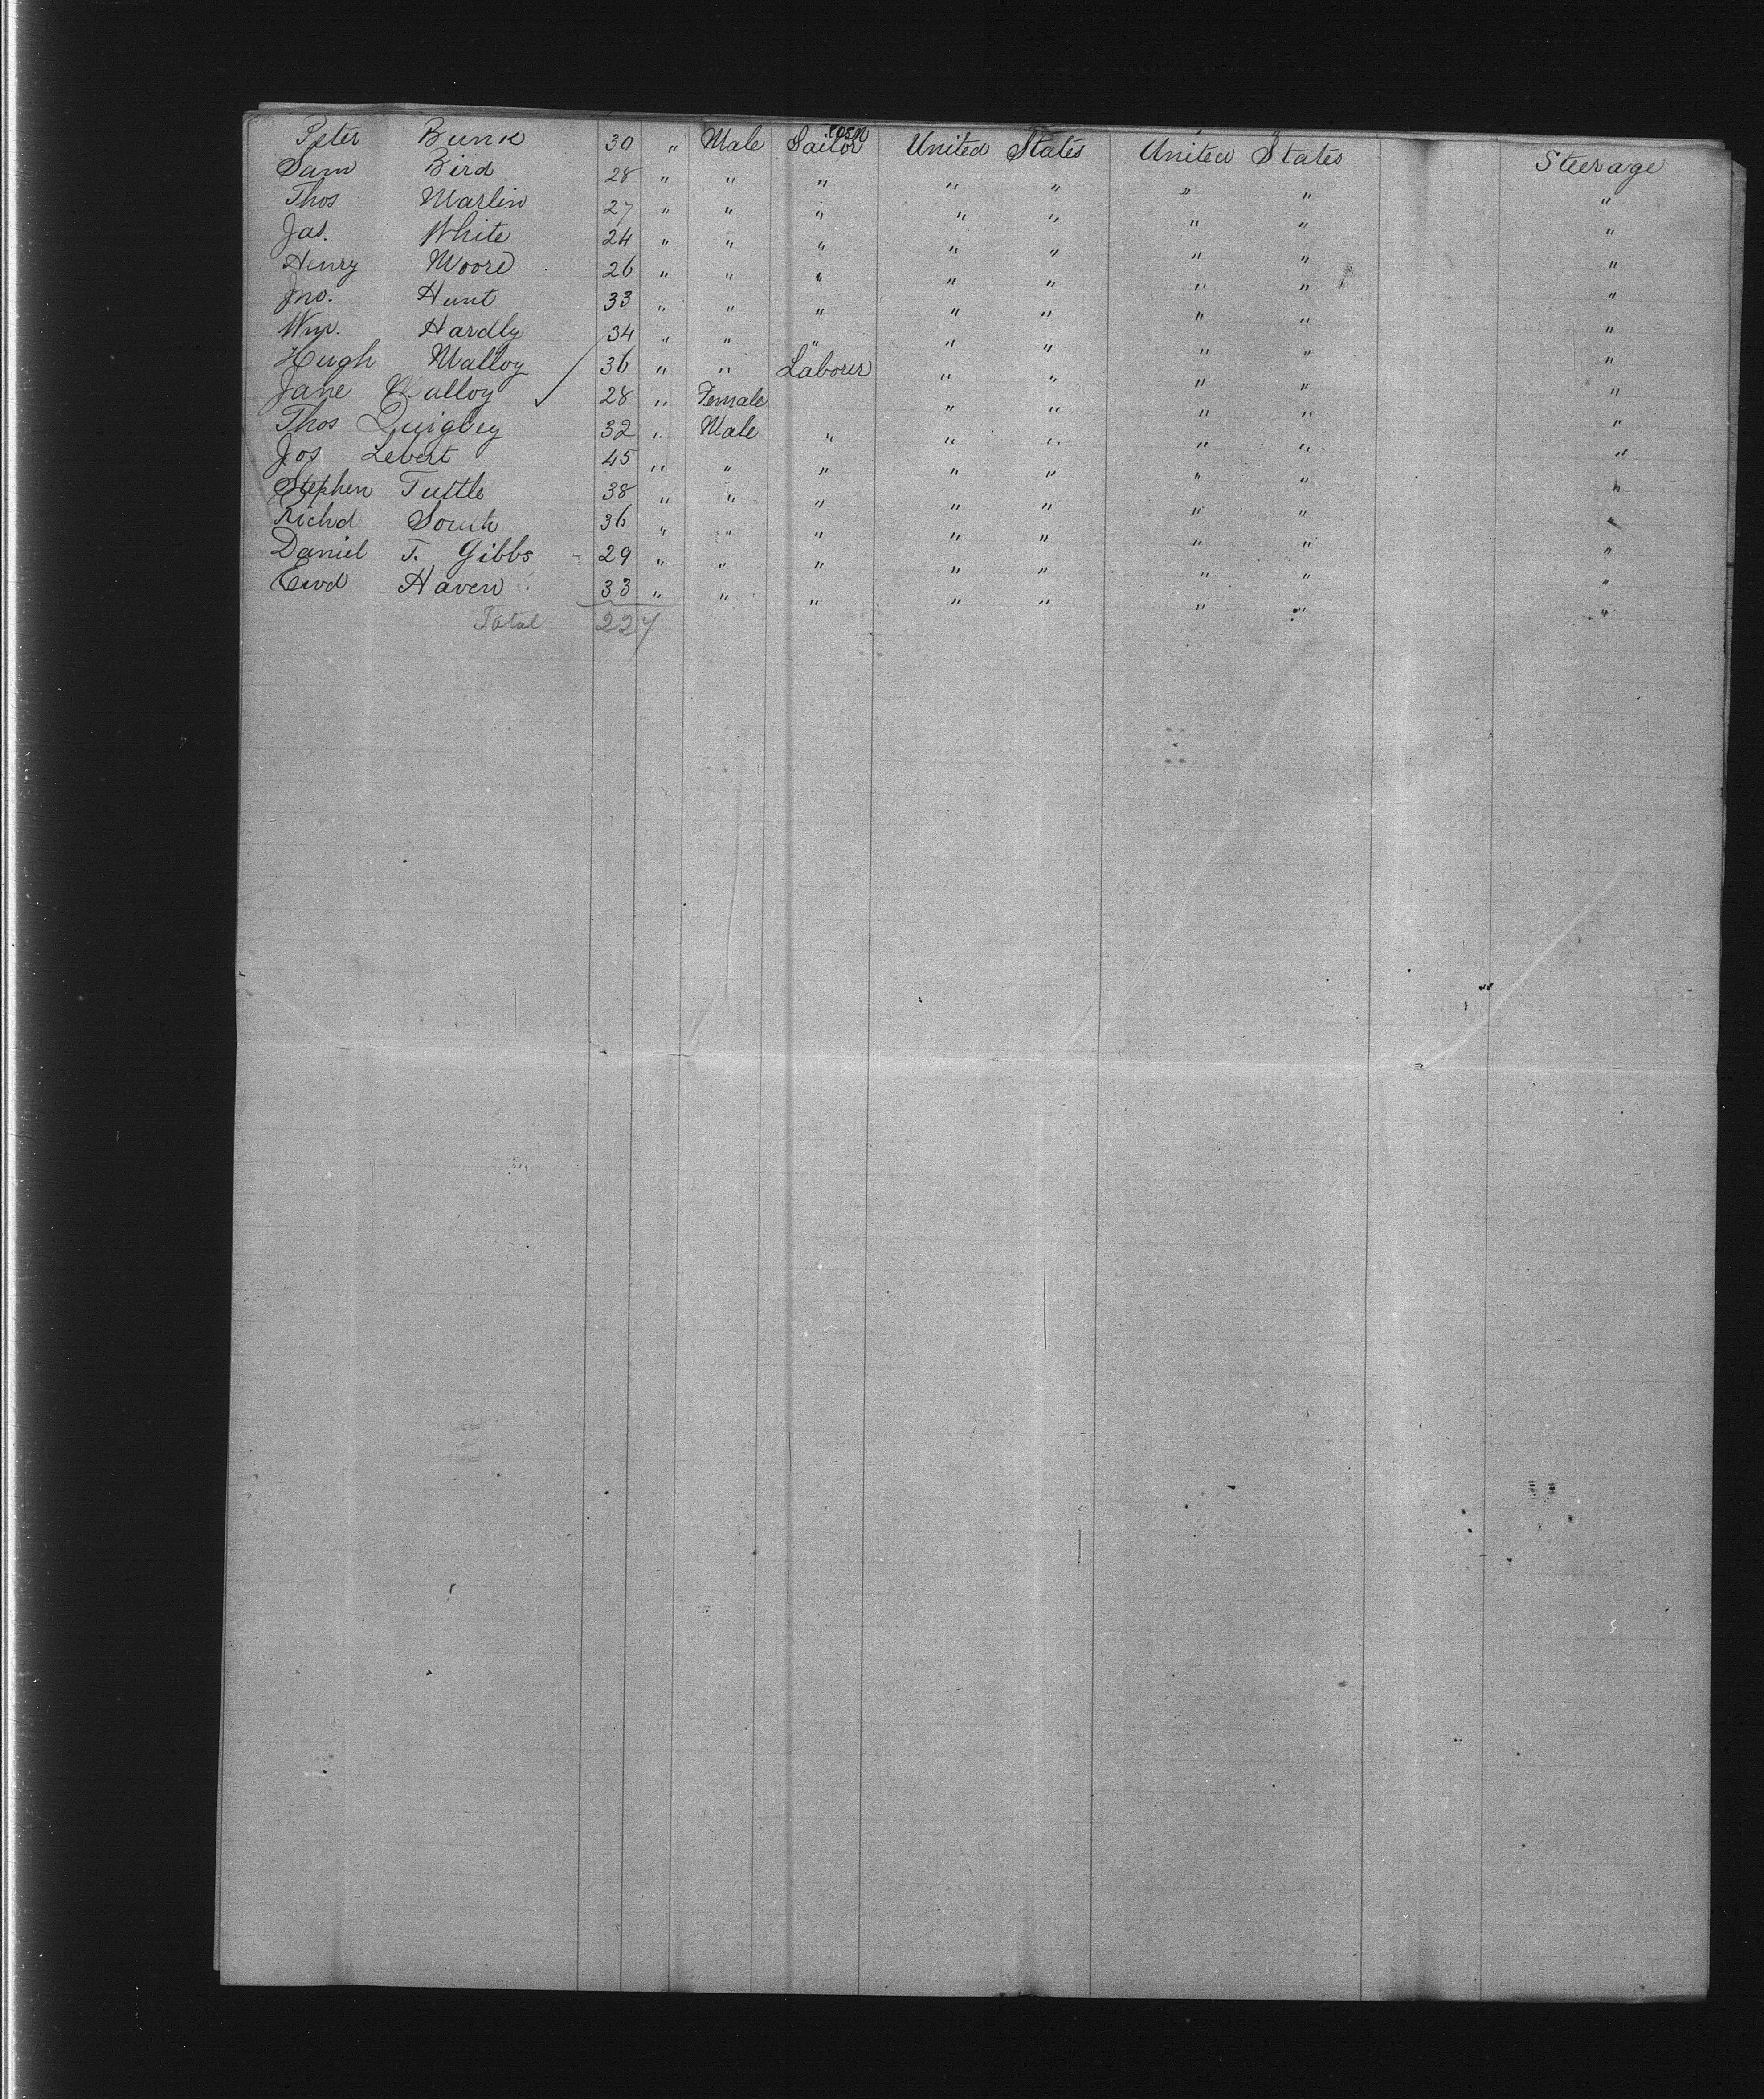 Peter Bunk 30 " Male Sailor United States United States Steerage
Sam Bird 28 " " " " " " " "
Thos Marlin 27 " " " " " " " "
Jas. White 24 " " " " " " " "
Henry Moore 26 " " " " " " " "
Jno. Hunt 33 " " " " " " " "
Wm. Hardly 34 " " " " " " " "
Hugh Malloy 36 " " Labourer " " " " "
Jane Malloy 28 " Female " " " " "
Thos Quigley 32 " Male " " " " " "
Jos Lebert 45 " " " " " " " "
Stephen Tuttle 38 " " " " " " " "
Richd South 36 " " " " " " " "
Daniel T. Gibbs 29 " " " " " " " "
Ewd Haven 33 " " " " " " " "
Total 227